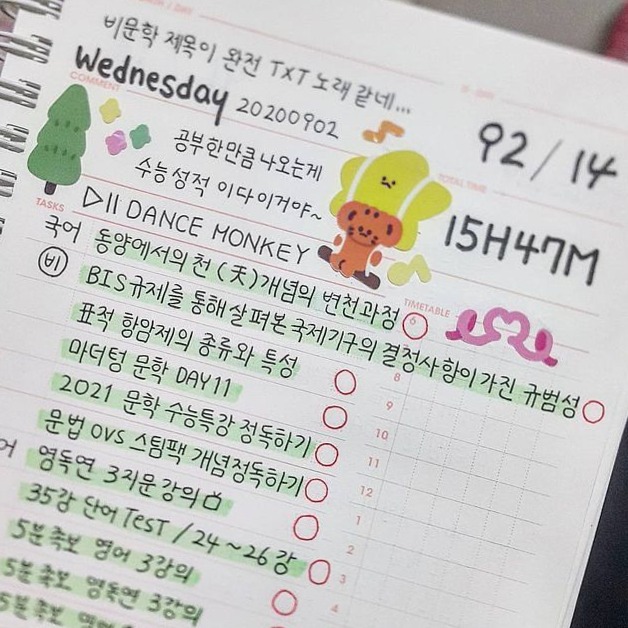 비문학 제목이 완전 TXT 노래 같네...
Wednesday 20200902
92/14
COMMENT
공부한만큼 나오는게
수능 성적 이다 이거야~
TOTAL TIME
15H47M
TASKS
▷ll DANCE MONKEY
TIMETABLE
국어 동양에서의 천(天)개념의 변천과정
비 BIS규제를 통해 살펴본 국제기구의 결정사항이 가진 규범성
표적 항암제의 종류와 특성
마더텅 문학 DAY11
2021 문학 수능특강 정독하기
문법 OVS 스팀팩 개념정독하기
어 영독연 3지문 강의
35강 단어 TesT / 24~26강
5분축보 영어 3강의
5분축보 영독연 3강의
5분축보
6
8
9
10
11
12
1
2
3
4